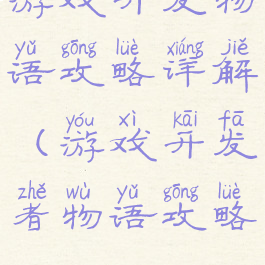 游戏开发物
yǔ gōng lüè xiáng jiě
语攻略详解
yóu xì kāi fā
(游戏开发
zhě wù yǔ gōng lüè
者物语攻略